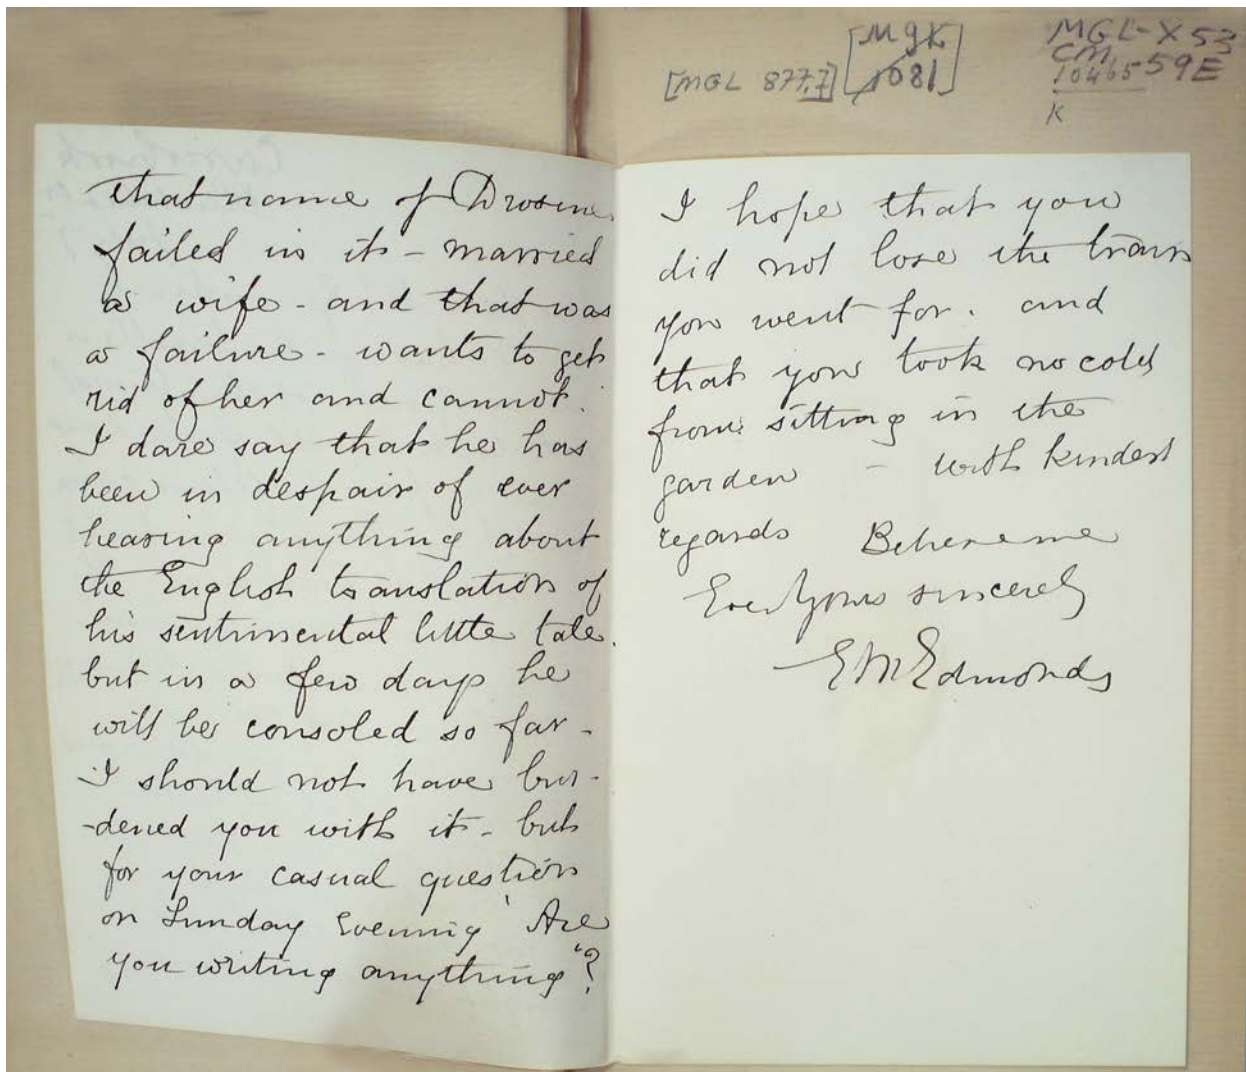 [MGL 877.7]
[MgK
1081]
MGL-X 53
CM 59E
10465
K
that name of Drosine
failed in it - married
a wife - and that was
a failure - wants to get
rid of her and cannot.
I dare say that he has
been in despair of ever
hearing anything about
the English translation of
his sentimental little tale.
but in a few days he
will be consoled so far -
I should not have bur-
-dened you with it - but
for your casual question
on Sunday Evening "Are
you writing anything"?
I hope that you
did not lose the train
you went for. and
that you took no cold
from sitting in the
garden - with kindest
regards Believe me
Ever Yours sincerely
EMEdmonds